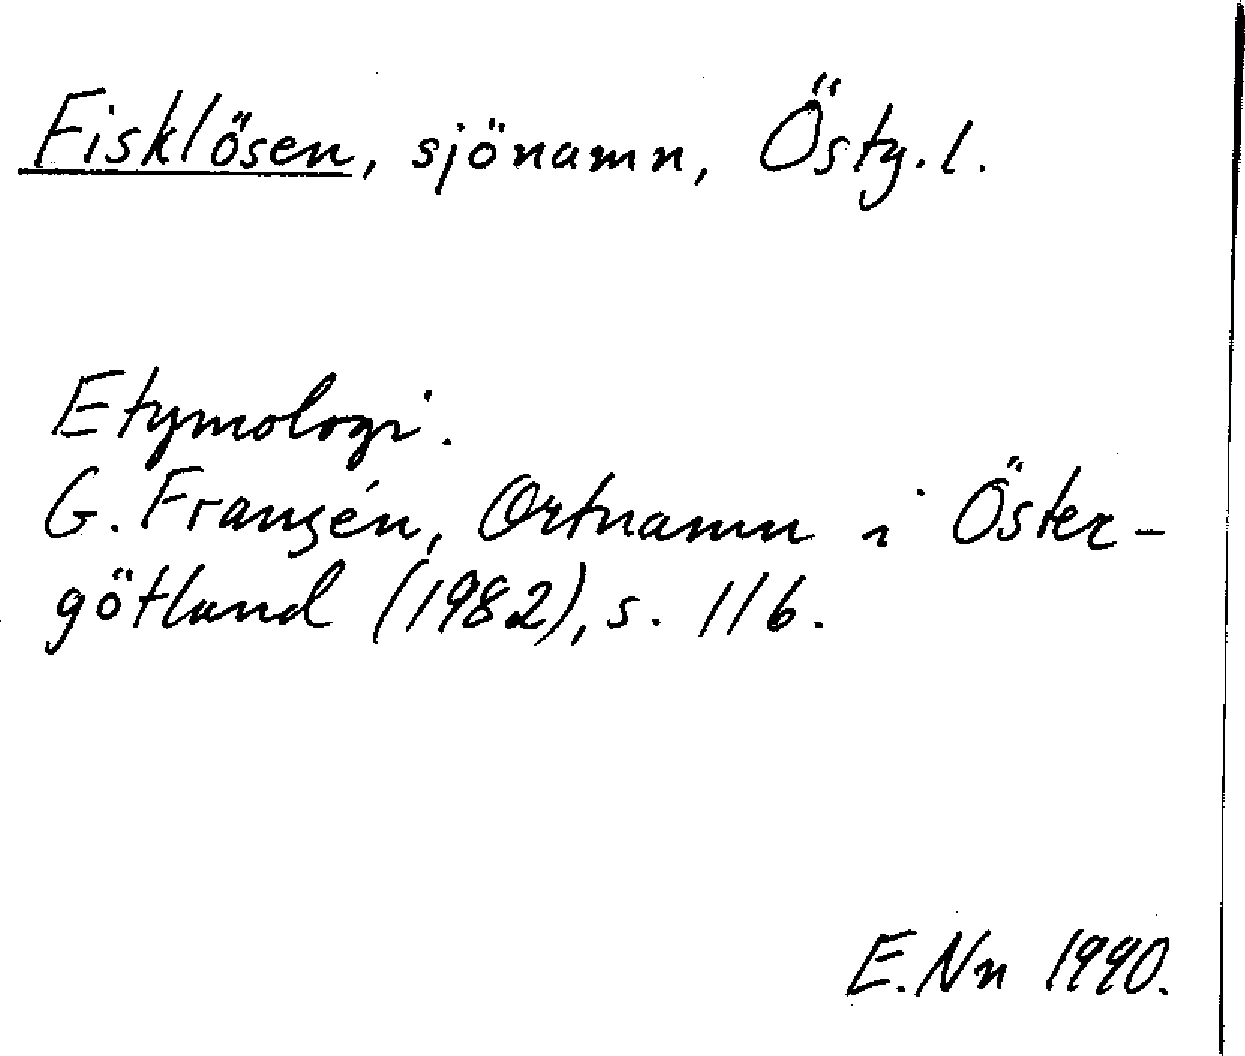 Fisklösen, sjönamn, Östg. l.
Etymologi.
G. Franzén, Ortnamn i Öster-
götland (1982), s. 116.
E. Nn 1990.